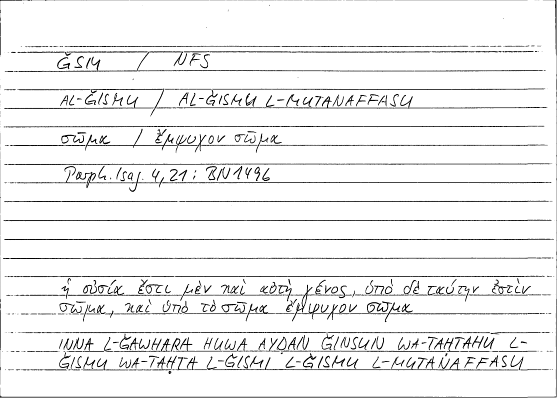 ǦSM / NFS
AL-ǦISMU / AL-ǦISMU L-MUTANAFFASU
σῶμα / ἔμψυχον σῶμα
Porph. Isag. 4,21 : BN1496
ἡ οὐσία ἔστι μὲν καὶ αὐτὴ γένος, ὑπὸ δὲ ταύτην ἐστὶν
σῶμα, καὶ ὑπὸ τὸ σῶμα ἔμψυχον σῶμα
INNA L-ǦAWHARA HUWA AYḌAN ǦINSUN WA-TAḤTAHŪ L-
ǦISMU WA-TAḤTA L-ǦISMI L-ǦISMU L-MUTANAFFASU